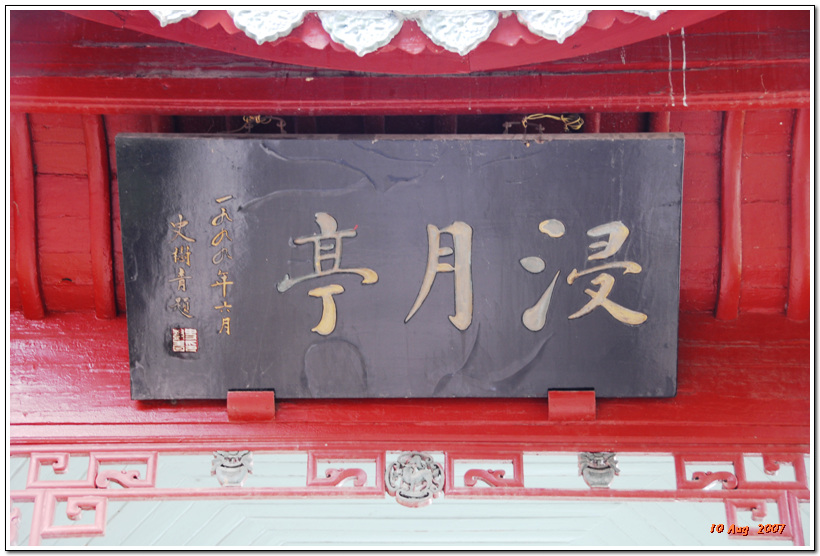 浸月亭
一九九八年六月
史樹青題
10 Aug 2007